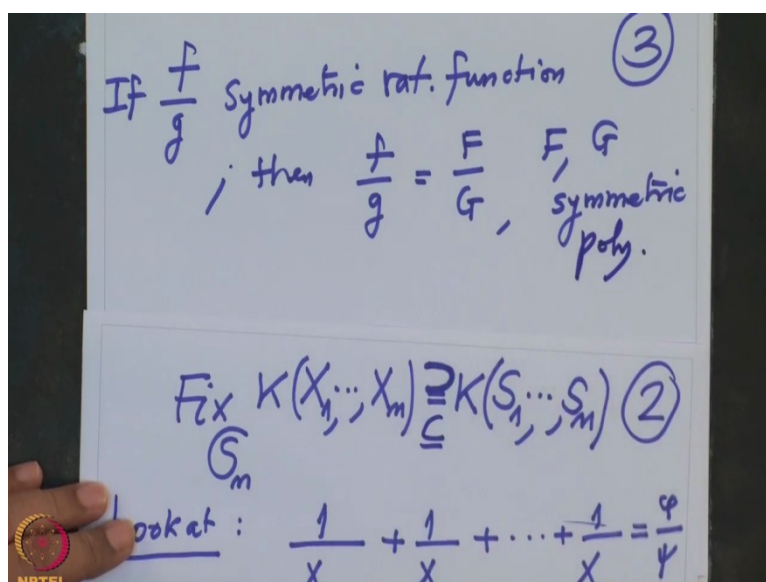 ③
If f/g symmetric rat. function
; then f/g = F/G, F, G symmetric poly.
②
Fix K(X₁, ..., Xₙ) ⊇ K(S₁, ..., Sₙ)
𝔖ₙ ⊆
Look at : 1/X + 1/X + ··· + 1/X = φ/ψ
NPTEL